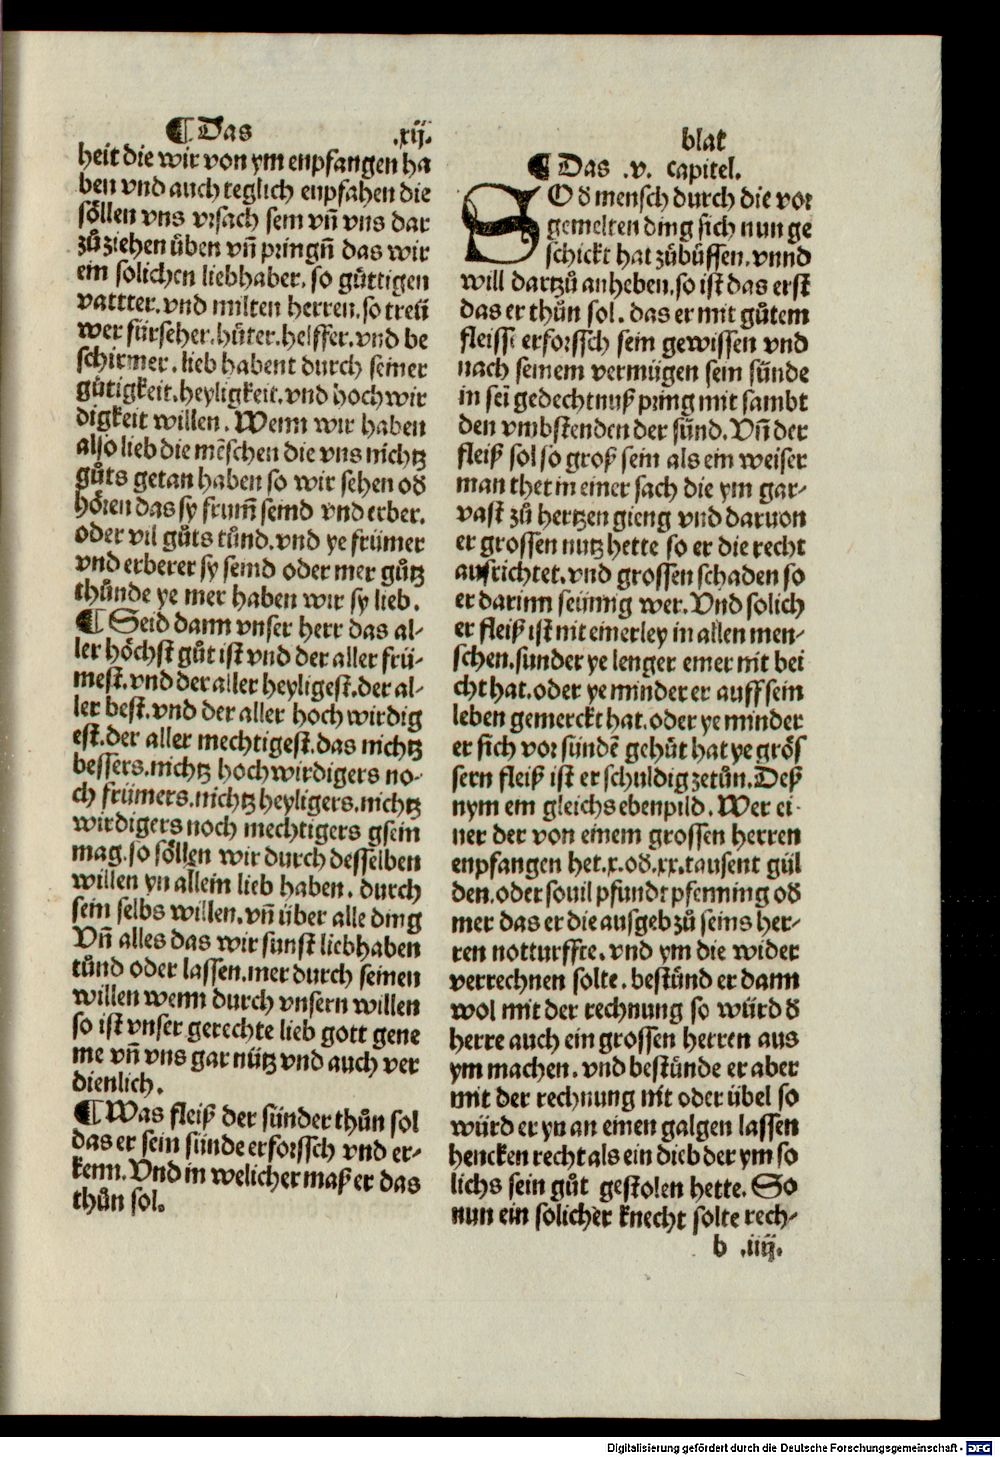 ¶ Das .xij.
heit die wir von ym enpfangen ha
ben vnd auch teglich enpfahen die
söllen vns vrsach sein vn̄ vns dar
zů ziehen üben vn̄ pringn̄ das wir
ein solichen liebhaber. so gůttigen
vattter. vnd milten herren. so treü
wer fürseher. hůter. helffer. vnd be
schirmer. lieb habent durch seiner
gůtigkeit. heyligkeit. vnd hochwir
digkeit willen. Wenn wir haben
also lieb die mēschen die vns nichtz
gůts getan haben so wir sehen od
hören das sy frum̄ seind vnd erber.
oder vil gůts tůnd. vnd ye frümer
vnd erberer sy seind oder mer gůtz
thůnde ye mer haben wir sy lieb.
¶ Seid dann vnser herr das al-
ler höchst gůt ist vnd der aller frü-
mest. vnd der aller heyligest. der al-
ler best. vnd der aller hochwirdig
est. der aller mechtigest. das nichtz
bessers. nichtz hochwirdigers no-
ch frümers. nichtz heyligers. nichtz
wirdigers noch mechtigers gsein
mag. so söllen wir durch desselben
willen yn allein lieb haben. durch
sein selbs willen. vn̄ über alle ding
Vn̄ alles das wir sunst liebhaben
tůnd oder lassen. mer durch seinen
willen wenn durch vnsern willen
so ist vnser gerechte lieb gott gene
me vn̄ vns gar nütz vnd auch ver
dienlich.
¶ Was fleiß der sünder thůn sol
das er sein sünde erforssch vnd er-
kenn. Vnd in welicher maß er das
thůn sol.
blat
¶ Das .v. capitel.
SO d mensch durch die vor
gemelten ding sich nun ge
schickt hat zůbüssen. vnnd
will dartzů anheben. so ist das erst
das er thůn sol. das er mit gůtem
fleiss erforssch sein gewissen vnd
nach seinem vermügen sein sünde
in sei gedechtnuß pring mit sambt
den vmbstenden der sünd. Vn̄ der
fleiß sol so groß sein als ein weiser
man thet in einer sach die ym gar-
vast zů hertzen gieng vnd daruon
er grossen nutz hette so er die recht
ausrichtet. vnd grossen schaden so
er darinn seünig wer. Vnd solich
er fleiß ist nit einerley in allen men-
schen. sunder ye lenger einer nit bei
cht hat. oder ye minder er auff sein
leben gemerckt hat. oder ye minder
er sich vor sündē gehůt hat ye grös
sern fleiß ist er schuldig zetůn. Deß
nym ein gleichs ebenpild. Wer ei-
ner der von einem grossen herren
enpfangen het .x. od .xx. tausent gül
den. oder souil pfundt pfenning od
mer das er die ausgeb zů seins her-
ren notturffte. vnd ym die wider
verrechnen solte. bestünd er dann
wol mit der rechnung so würd d
herre auch ein grossen herren aus
ym machen. vnd bestünde er aber
mit der rechnung nit oder übel so
würd er yn an einen galgen lassen
hencken recht als ein dieb der ym so
lichs sein gůt gestolen hette. So
nun ein solicher knecht solte rech-
b .iiij.
Digitalisierung gefördert durch die Deutsche Forschungsgemeinschaft - DFG